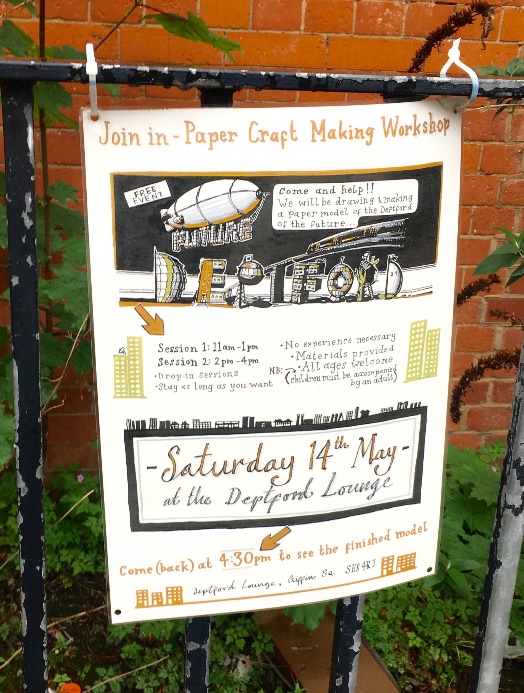 Join in - Paper Craft Making Workshop
FREE
EVENT
Come and help!!
We will be drawing & making
a paper model of the Deptford
of the future...
FUTURE
DEPTFORD
Session 1: 11am-1pm
Session 2: 2pm-4pm
• Drop-in sessions
• Stay as long as you want
• No experience necessary
• Materials provided
• All ages welcome
NB: (children must be accompanied
by an adult)
- Saturday 14th May -
at the Deptford Lounge
Come (back) at 4:30pm to see the finished model
Deptford Lounge, Giffin Sq. SE8 4RJ